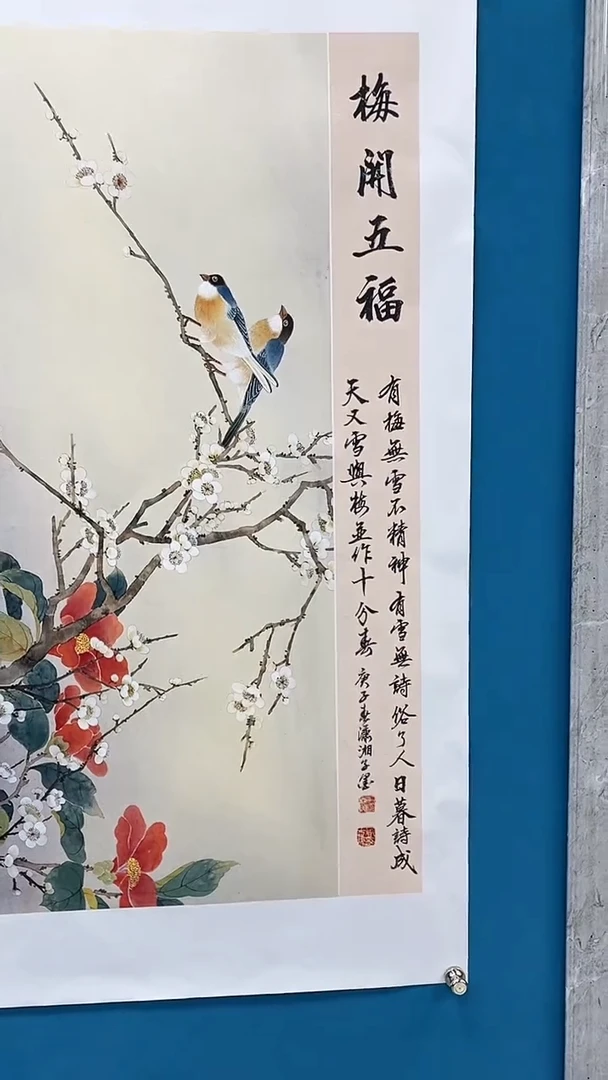 梅開五福
有梅無雪不精神有雪無詩俗了人日暮詩成
天又雪與梅並作十分春 庚子春瀟湘子墨